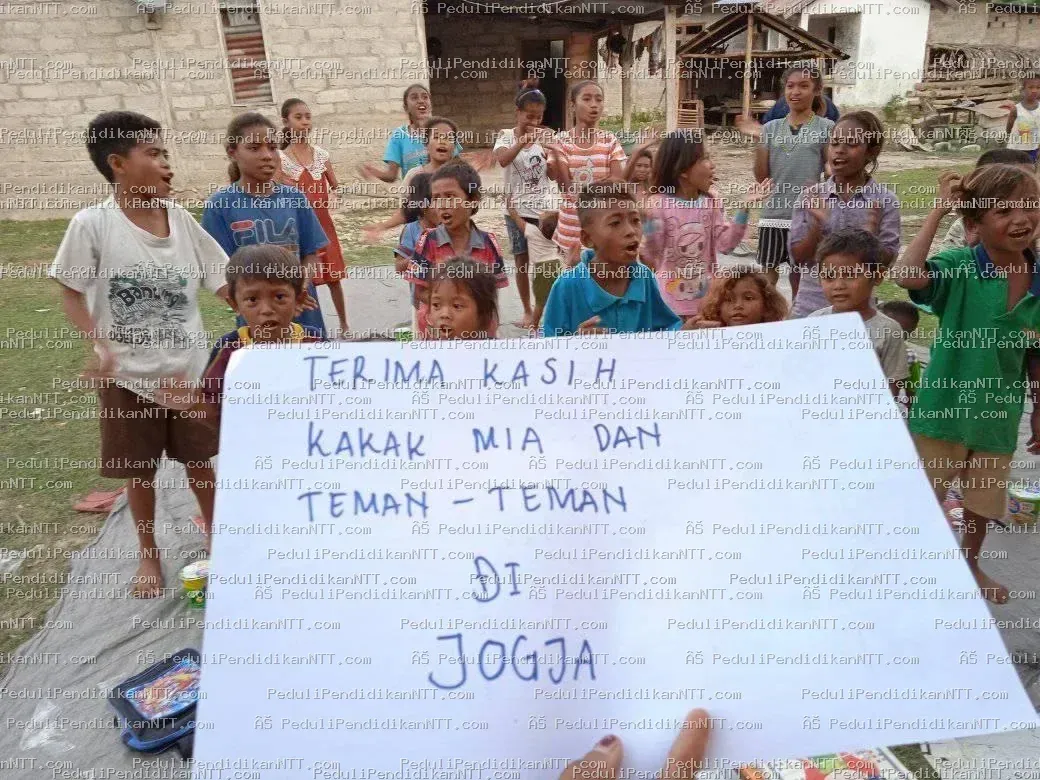 FILA
Bandung
TERIMA KASIH
KAKAK MIA DAN
TEMAN - TEMAN
DI
JOGJA
ÂŠ PeduliPendidikanNTT.com